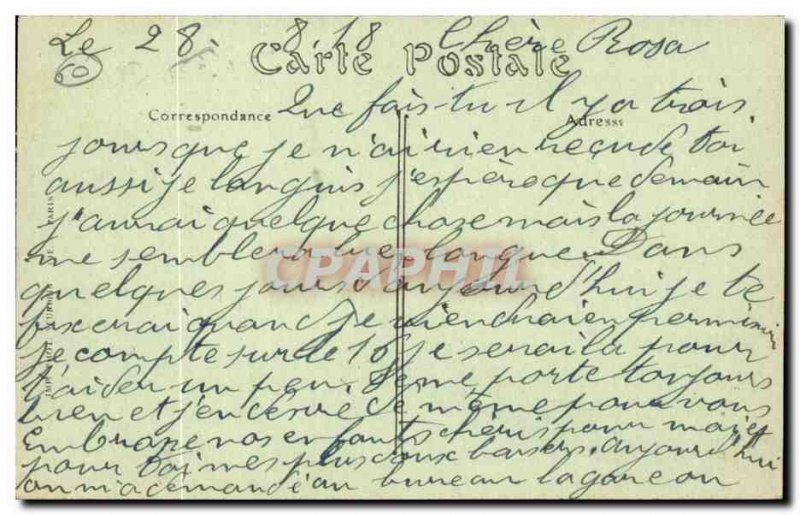 Le 28. 8 18 Chère Rosa
60
Carte Postale
Correspondance
Adresse
Que fais-tu il y a trois
jours que je n'ai rien reçu de toi
aussi je languis j'espère que demain
j'aurai quelque chose mais la journée
me semblera longue. Dans
quelques jours d'aujourd'hui je te
fixerai quand je viendrai en permission
je compte sur le 16 je serai la pour
t'aider un peu. Je me porte toujours
bien et j'en desire de même pour vous
Embrasse nos enfants cheris pour moi et
pour toi mes plus doux baisers. aujourd'hui
on m'a demandé au bureau la garcon
CPAPHIL
PARIS